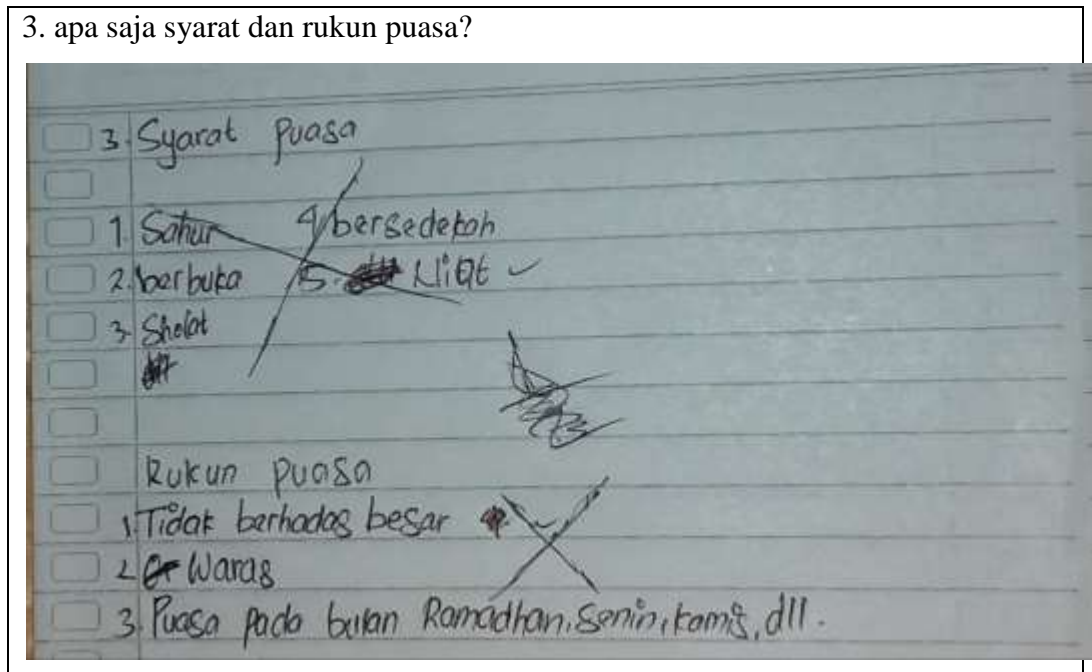 3. apa saja syarat dan rukun puasa?
3. Syarat puasa
1. Sahur 4. bersedekah
2. berbuka 5. Niat
3. Sholat
Rukun puasa
1. Tidak berhadas besar
2. Waras
3. Puasa pada bulan Ramadhan, Senin, kamis, dll.